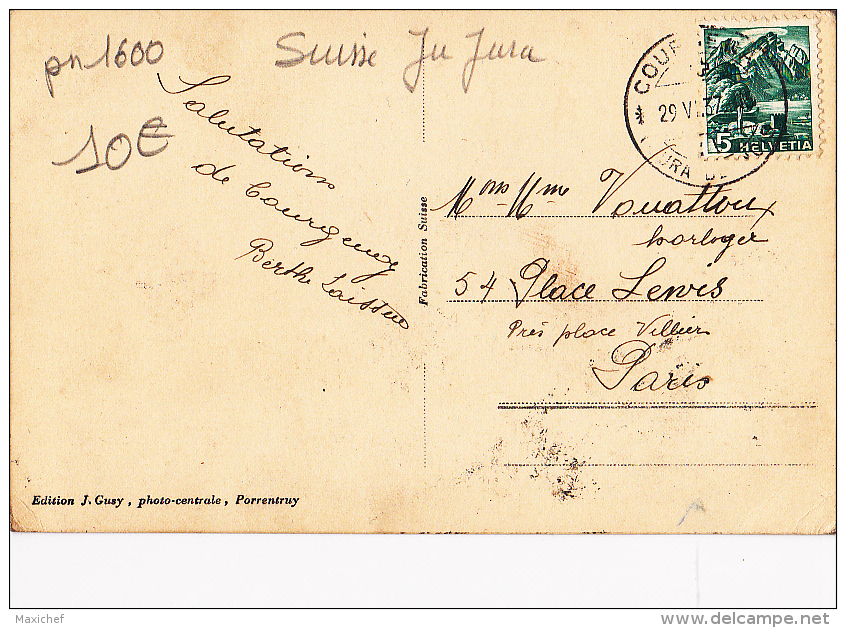 pn 1600
Suisse Ju Jura
10€
Salutations
de Courgenay
Berthe
COUR
29 VI. 37
JURA
5 HELVETIA
Fabrication Suisse
Mons Mme Vouattoux
horloger
54 Place Lewis
Près place Villier
Paris
Edition J. Gusy, photo-centrale, Porrentruy
Maxichef
delcampe.net